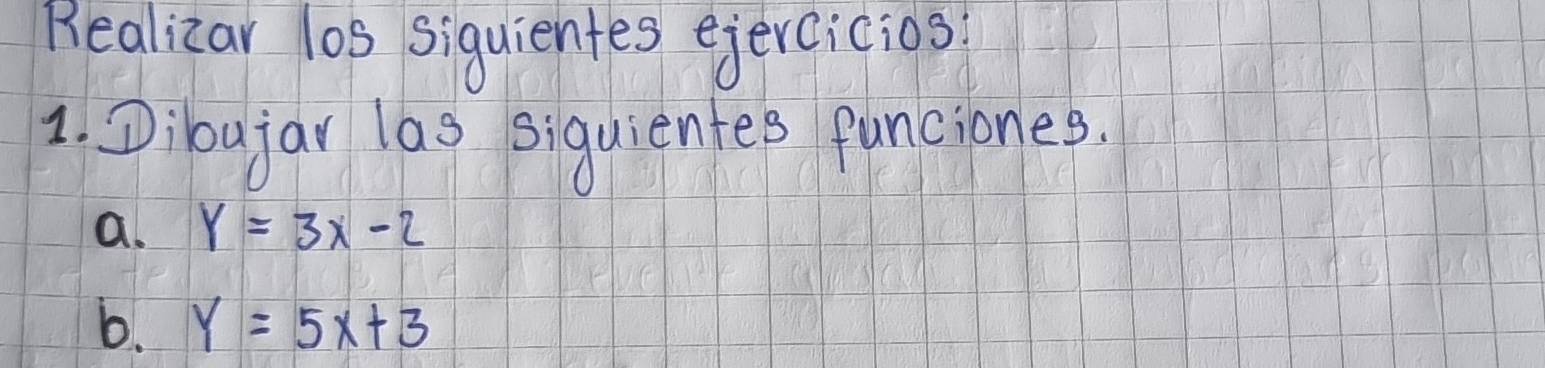 Realizar los siguientes ejercicios:
1. Dibujar las siguientes funciones.
a. Y = 3x - 2
b. Y = 5x + 3